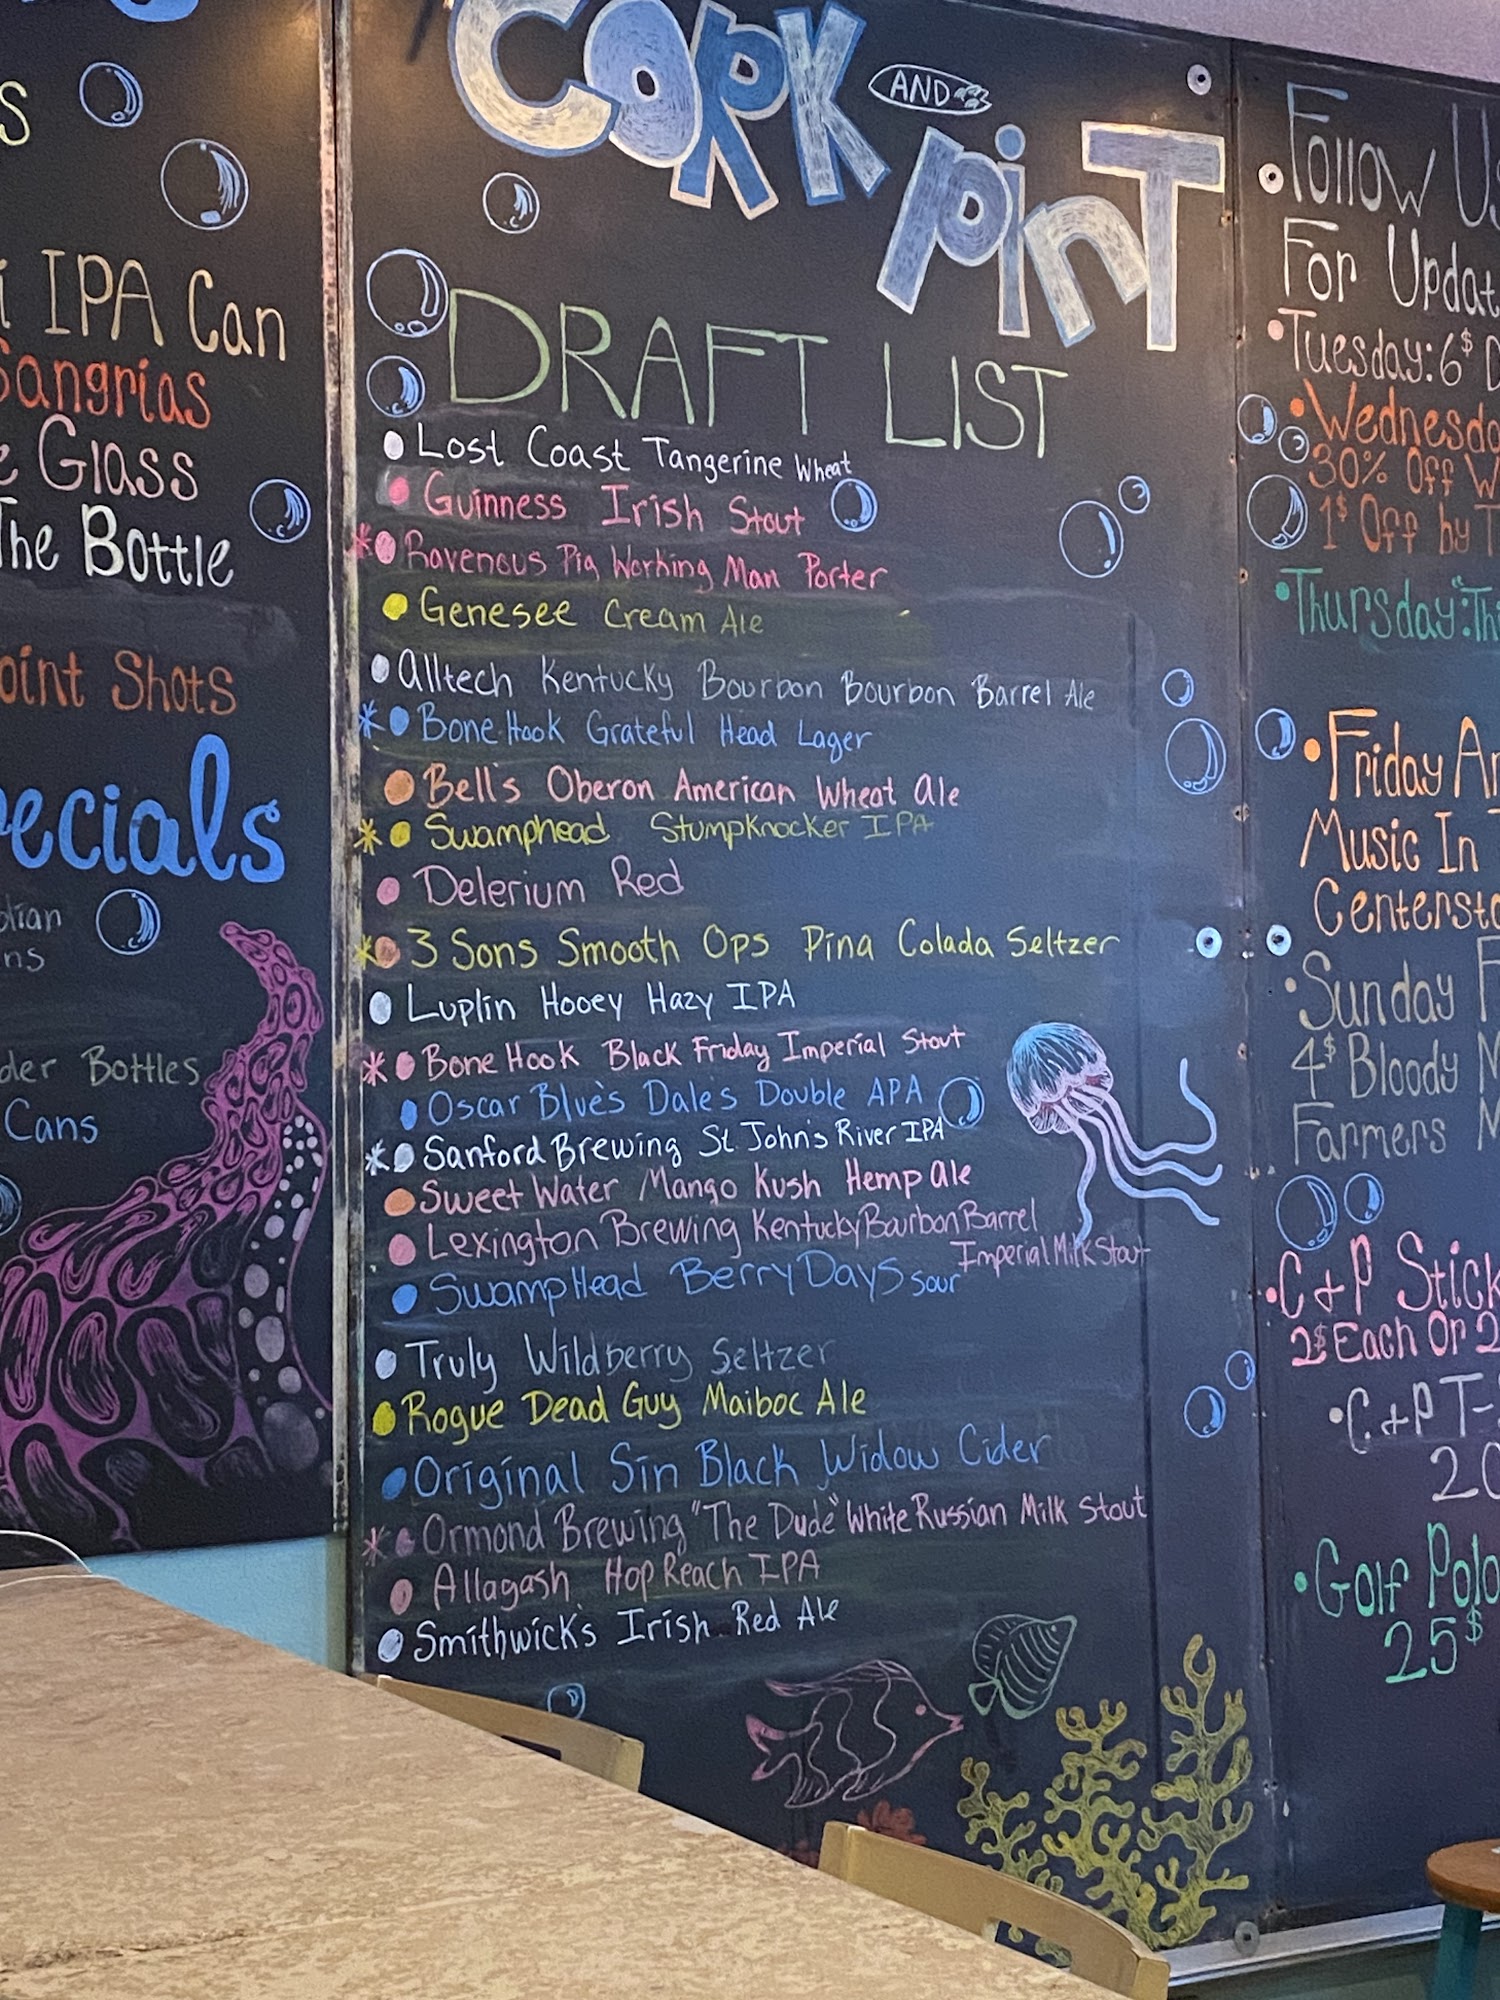 IPA Can
Sangrias
Glass
The Bottle
Shots
CORK AND PinT
DRAFT LIST
Lost Coast Tangerine Wheat
Guinness Irish Stout
* Ravenous Pig Working Man Porter
Genesee Cream Ale
Alltech Kentucky Bourbon Bourbon Barrel Ale
* Bone Hook Grateful Head Lager
Bell's Oberon American Wheat Ale
* Swamphead Stumpknocker IPA
Delerium Red
* 3 Sons Smooth Ops Pina Colada Seltzer
Luplin Hooey Hazy IPA
* Bone Hook Black Friday Imperial Stout
Oscar Blue's Dale's Double APA
* Sanford Brewing St. John's River IPA
Sweet Water Mango Kush Hemp Ale
Lexington Brewing Kentucky Bourbon Barrel
Imperial Milk Stout
SwampHead Berry Days Sour
Truly Wildberry Seltzer
Rogue Dead Guy Maiboc Ale
Original Sin Black Widow Cider
* Ormond Brewing "The Dude" White Russian Milk Stout
Allagash Hop Reach IPA
Smithwick's Irish Red Ale
Bottles
Cans
Follow
For
Tuesday: 6$
30% Off
1$ Off by
Thursday:
Friday
Music In
Sunday
4$ Bloody
Farmers
C+P
2$ Each Or
C+P
Golf
25$